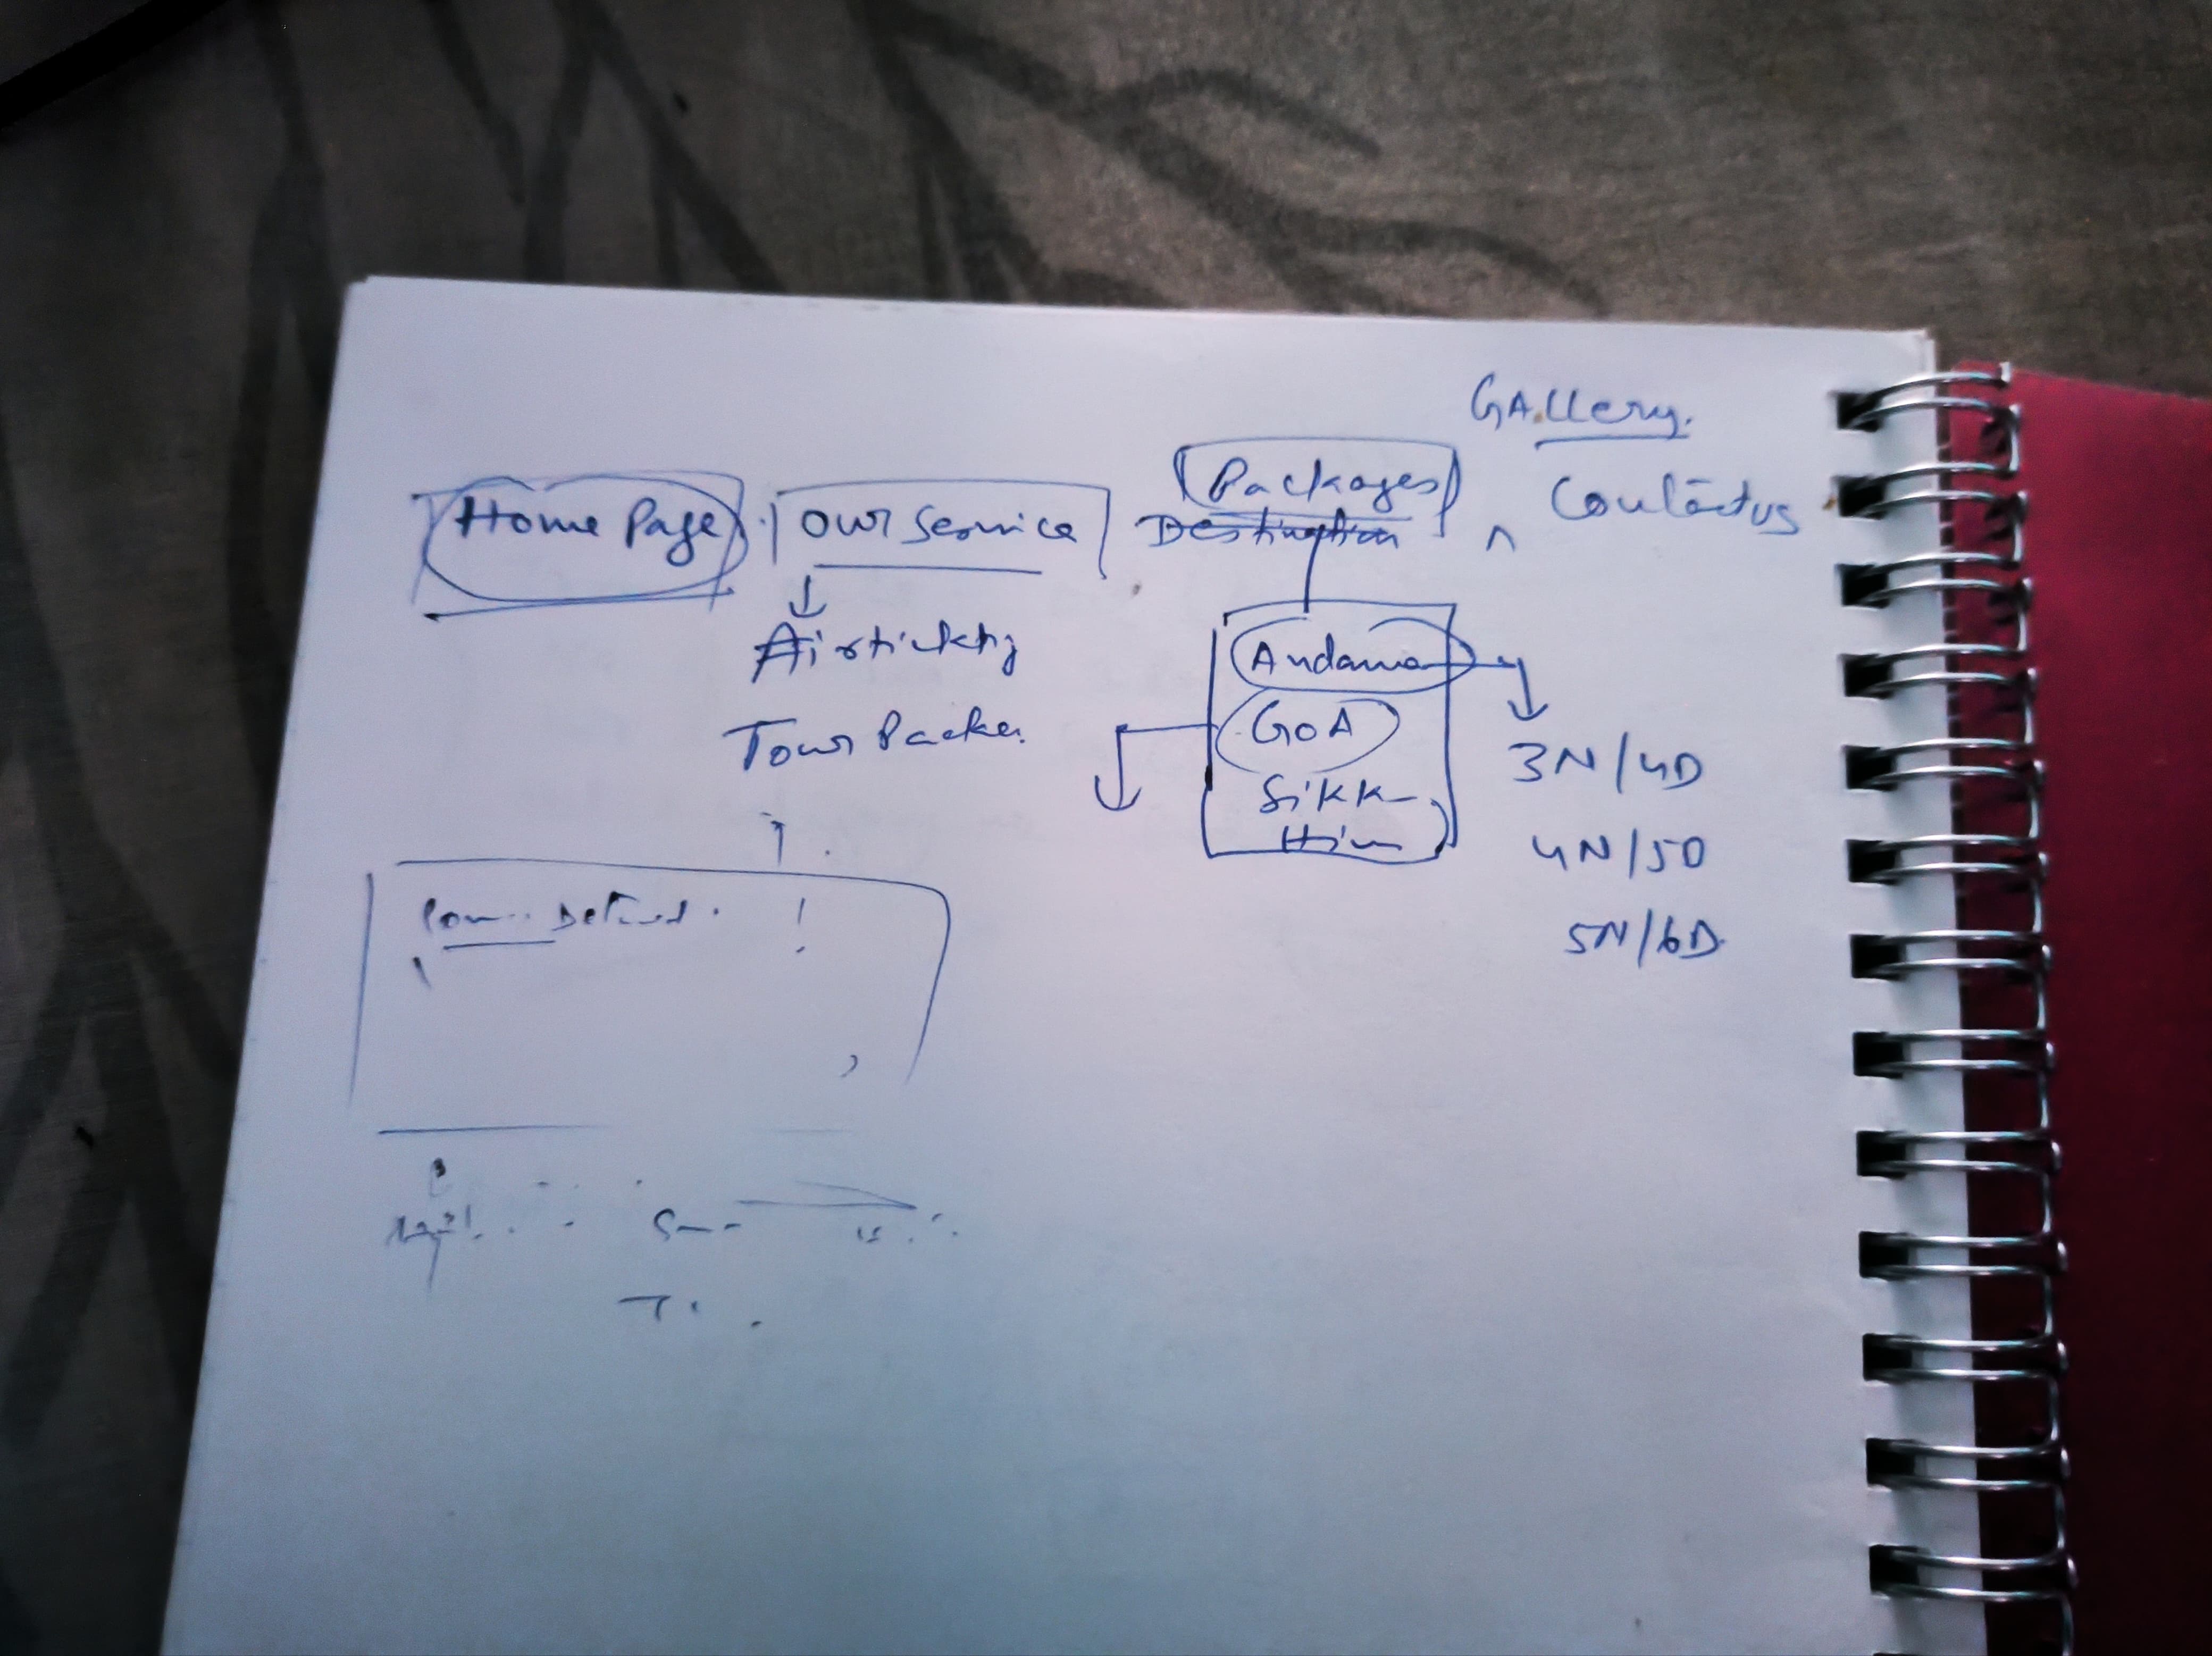 GALLery.
Home Page
our Service
Packages
Destination
Contactus
Airticktg
Tour Packe.
Andaman
GOA
Sikk
Him
3N/4D
4N/5D
5N/6D